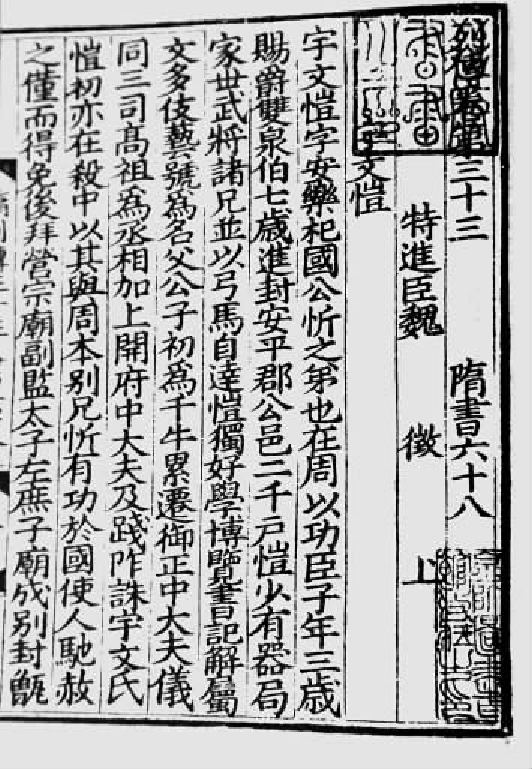 列傳第三十三　隋書六十八
特進臣魏　徵　上
宇文愷
宇文愷字安樂杞國公忻之弟也在周以功臣子年三歲
賜爵雙泉伯七歲進封安平郡公邑二千戸愷少有器局
家世武將諸兄並以弓馬自達愷獨好學博覽書記解屬
文多伎藝號爲名父公子初爲千牛累遷御正中大夫儀
同三司髙祖爲丞相加上開府中大夫及踐阼誅宇文氏
愷初亦在殺中以其與周本別兄忻有功於國使人馳赦
之僅而得免後拜營宗廟副監太子左庶子廟成別封甑